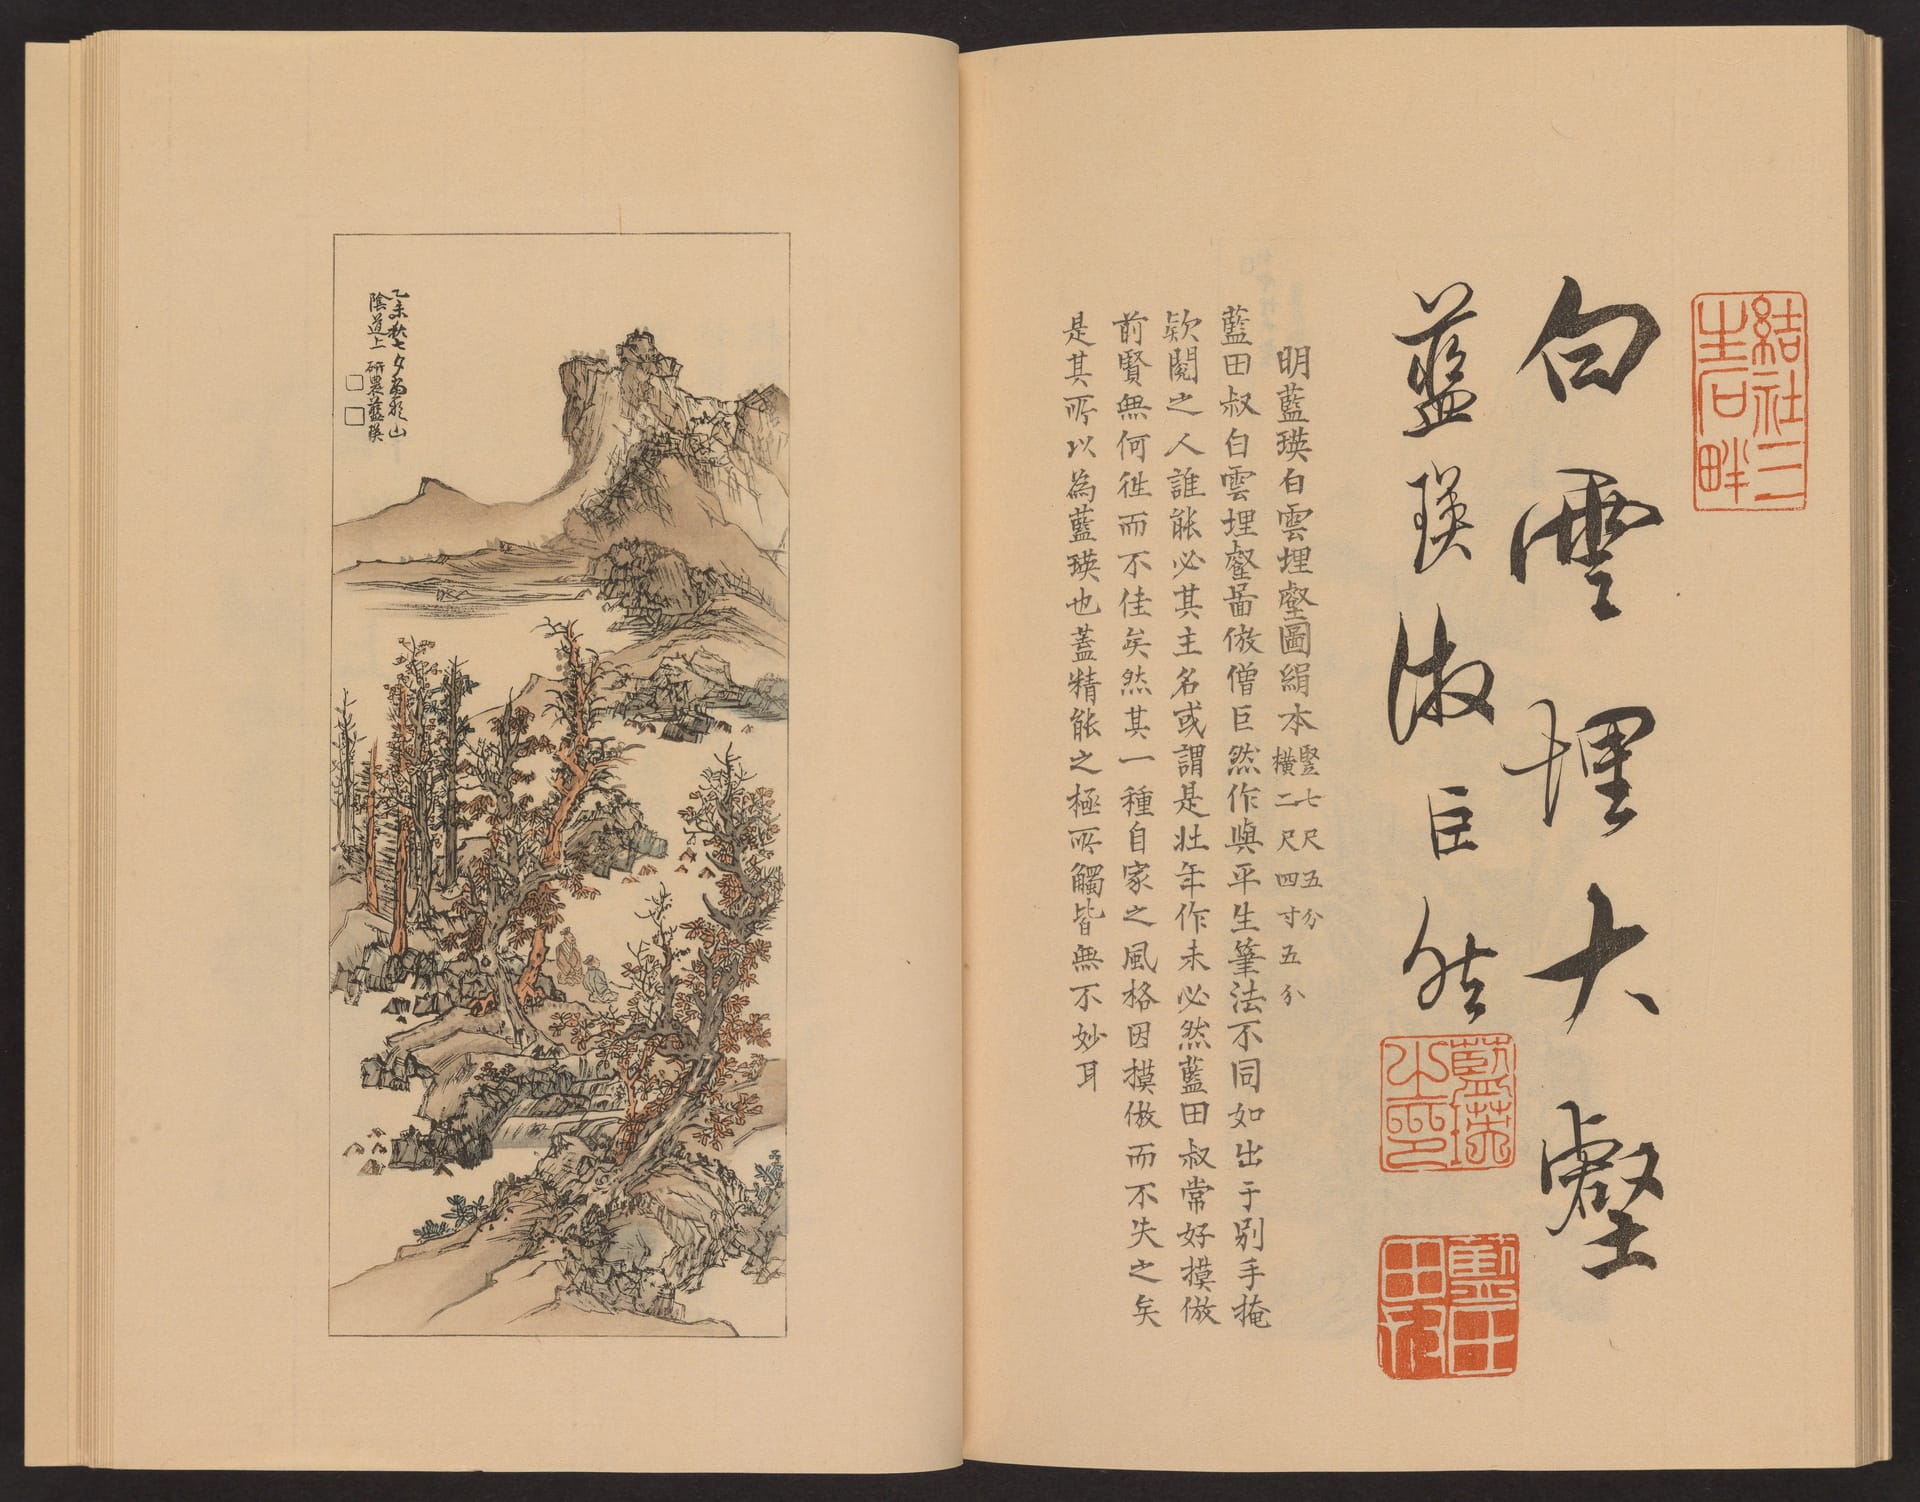 結社三
生石畔
白雲埋大壑
藍瑛淑巨然
藍瑛
之印
藍田
田叔
明藍瑛白雲埋壑圖絹本竪七尺五分
橫二尺四寸五分
藍田叔白雲埋壑啚倣僧巨然作與平生筆法不同如出于別手掩
欵閱之人誰能必其主名或謂是壯年作未必然藍田叔常好摸倣
前賢無何徃而不佳矣然其一種自家之風格因摸倣而不失之矣
是其所以為藍瑛也蓋精能之極所觸皆無不妙耳
乙未秋七夕山
陰道上 研農藍瑛